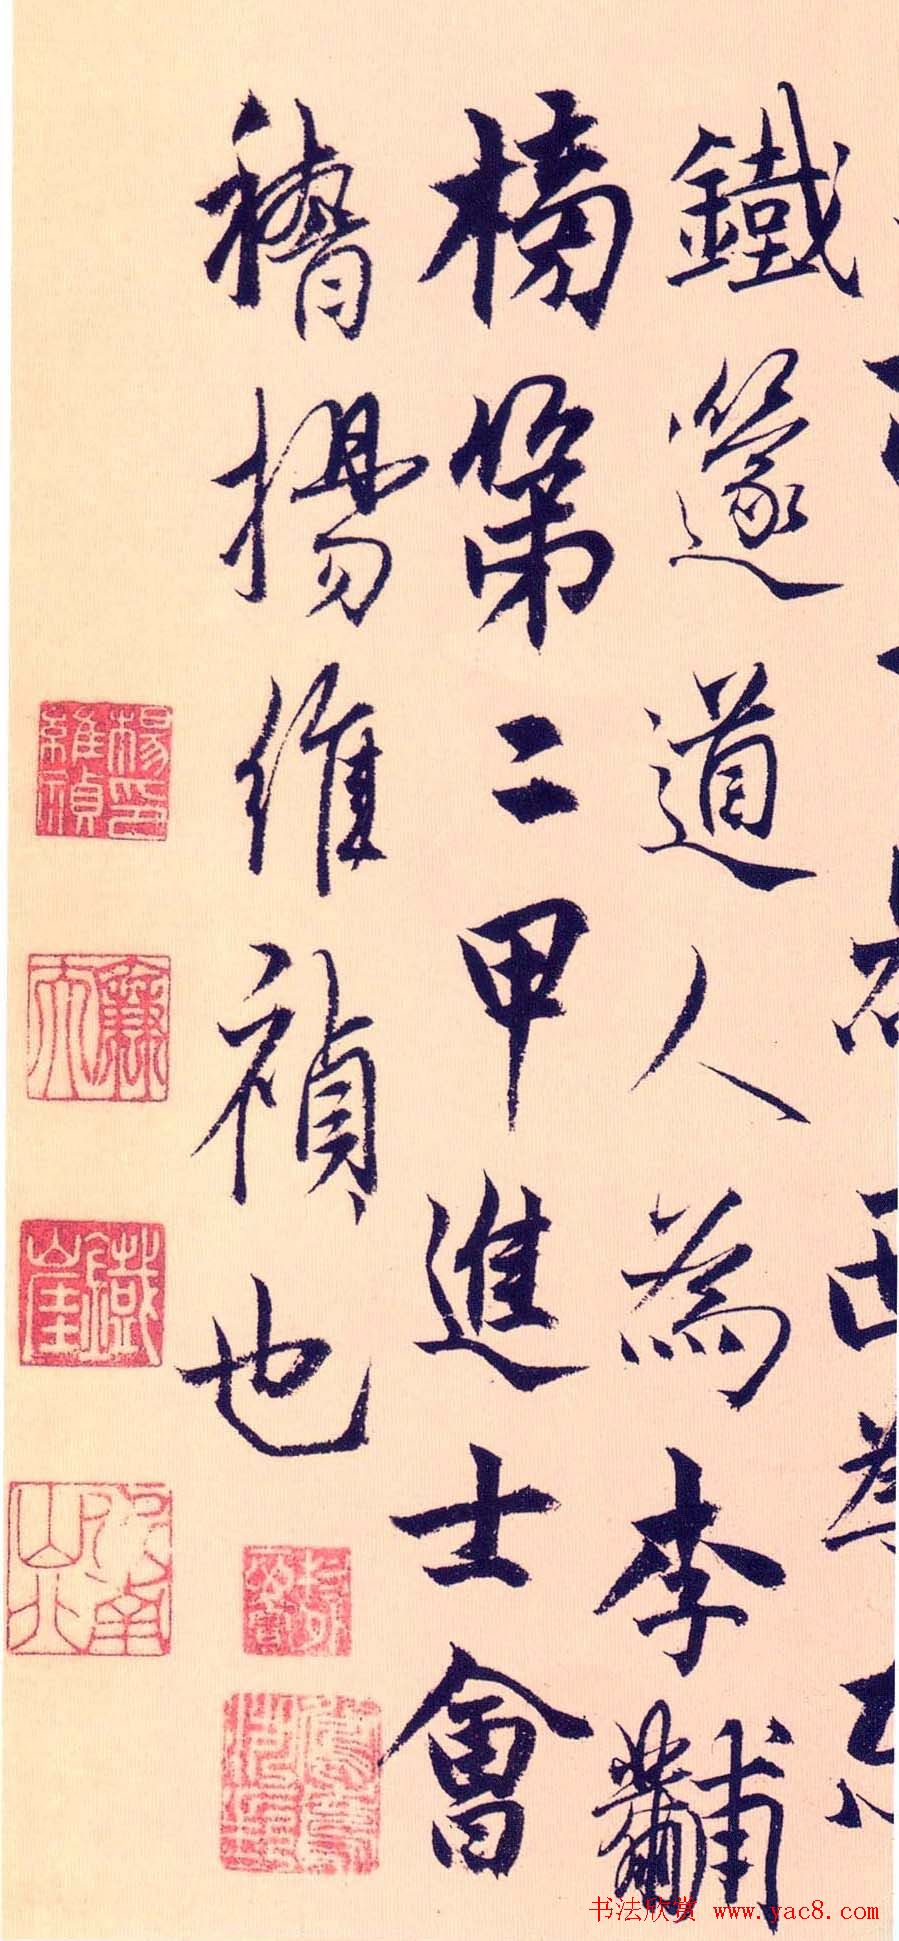 鐵篴道人為李黼
榜第二甲進士會
稽楊維禎也
楊印維禎
廉夫
鐵崖
书法欣赏 www.yac8.com